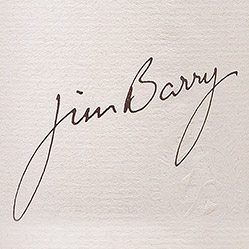 Jim Barry